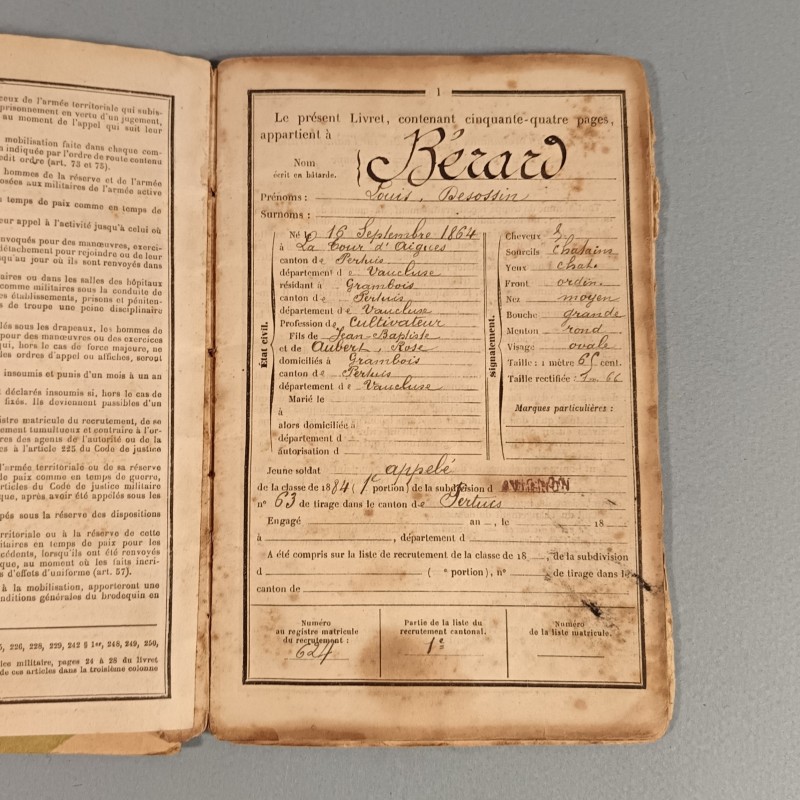 ceux de l'armée territoriale qui subis-
prisonnement en vertu d'un jugement,
au moment de l'appel qui suit leur
mobilisation faite dans chaque com-
n indiquée par l'ordre de route contenu
edit ordre (art. 73 et 75).
hommes de la réserve et de l'armée
posées aux militaires de l'armée active
temps de paix comme en temps de
eur appel à l'activité jusqu'à celui où
nvoqués pour des manœuvres, exerci-
détachement pour rejoindre ou de leur
qu'au jour où ils sont renvoyés dans
aires ou dans les salles des hôpitaux
comme militaires sous la conduite de
es établissements, prisons et péniten-
s de troupe une peine disciplinaire
lés sous les drapeaux, les hommes de
pour des manœuvres ou des exercices
qui, hors le cas de force majeure, ne
les ordres d'appel ou affiches, seront
insoumis et punis d'un mois à un an
t déclarés insoumis si, hors le cas de
fixés. Ils deviennent passibles d'un
istre matricule du recrutement, de se
ement tumultueux et contraire à l'or-
res des agents de l'autorité ou de la
es à l'article 225 du Code de justice
l'armée territoriale ou de sa réserve
de paix comme en temps de guerre,
articles du Code de justice militaire
que, après avoir été appelés sous les
pés sous la réserve des dispositions
rritoriale ou à la réserve de cette
itaires en temps de paix pour les
cédents, lorsqu'ils ont été renvoyés
que, au moment où les faits incri-
s d'effets d'uniforme (art. 57).
à la mobilisation, apporteront une
nditions générales du brodequin en
5, 226, 228, 229, 242 § 1er, 248, 249, 250,
ice militaire, pages 24 à 28 du livret
de ces articles dans la troisième colonne
1
Le présent Livret, contenant cinquante-quatre pages,
appartient à
Nom
écrit en bâtarde.
Bérard
Prénoms : Louis, Desossin
Surnoms :
État civil.
Né le 16 Septembre 1864
à La Tour d'Aigues
canton de Pertuis
département de Vaucluse
résidant à Grambois
canton de Pertuis
département de Vaucluse
Profession de Cultivateur
Fils de Jean-Baptiste
et de Aubert, Rose
domiciliés à Grambois
canton de Pertuis
département de Vaucluse
Marié le
à
alors domiciliée à
département d
autorisation d
signalement.
Cheveux &
Sourcils châtains
Yeux chat.
Front ordin.
Nez moyen
Bouche grande
Menton rond
Visage ovale
Taille : 1 mètre 65 cent.
Taille rectifiée : 1m 66
Marques particulières :
Jeune soldat appelé
de la classe de 1884 (1e portion) de la subdivision d AVIGNON
n° 63 de tirage dans le canton de Pertuis
Engagé an , le 18
à , département d
A été compris sur la liste de recrutement de la classe de 18 , de la subdivision
d ( e portion), n° de tirage dans le
canton de
Numéro
au registre matricule
du recrutement :
624
Partie de la liste du
recrutement cantonal.
1e
Numéro
de la liste matricule.